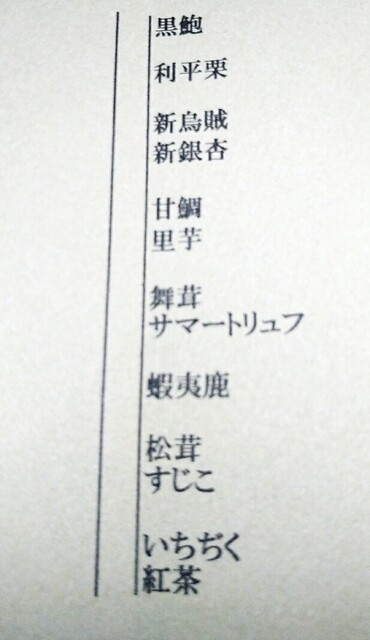 黒鮑
利平栗
新烏賊
新銀杏
甘鯛
里芋
舞茸
サマートリュフ
蝦夷鹿
松茸
すじこ
いちぢく
紅茶